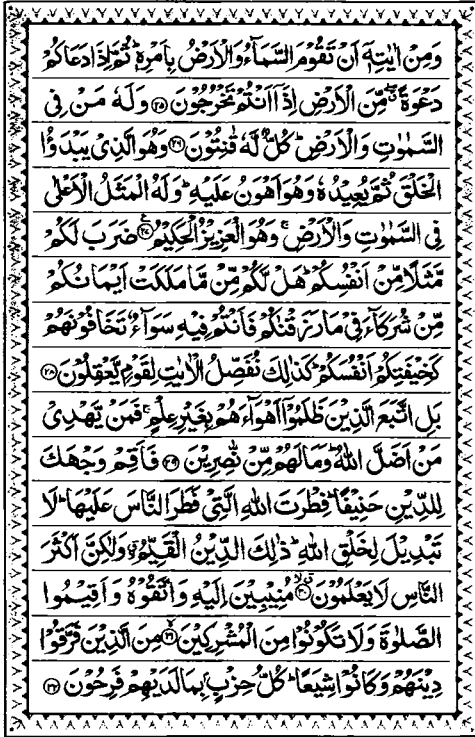 وَمِنْ اٰیٰتِهٖۤ اَنْ تَقُوْمَ السَّمَآءُ وَالْاَرْضُ بِاَمْرِهٖ ؕ ثُمَّ اِذَا دَعَاكُمْ
دَعْوَةً ۖۗ مِّنَ الْاَرْضِ اِذَاۤ اَنْتُمْ تَخْرُجُوْنَ ﴿۲۵﴾ وَلَهٗ مَنْ فِی
السَّمٰوٰتِ وَالْاَرْضِ ؕ كُلٌّ لَّهٗ قٰنِتُوْنَ ﴿۲۶﴾ وَهُوَ الَّذِیْ یَبْدَؤُا
الْخَلْقَ ثُمَّ یُعِیْدُهٗ وَهُوَ اَهْوَنُ عَلَیْهِ ؕ وَلَهُ الْمَثَلُ الْاَعْلٰی
فِی السَّمٰوٰتِ وَالْاَرْضِ ۚ وَهُوَ الْعَزِیْزُ الْحَكِیْمُ ﴿۲۷﴾ ضَرَبَ لَكُمْ
مَّثَلًا مِّنْ اَنْفُسِكُمْ ؕ هَلْ لَّكُمْ مِّنْ مَّا مَلَكَتْ اَیْمَانُكُمْ
مِّنْ شُرَكَآءَ فِیْ مَا رَزَقْنٰكُمْ فَاَنْتُمْ فِیْهِ سَوَآءٌ تَخَافُوْنَهُمْ
كَخِیْفَتِكُمْ اَنْفُسَكُمْ ؕ كَذٰلِكَ نُفَصِّلُ الْاٰیٰتِ لِقَوْمٍ یَّعْقِلُوْنَ ﴿۲۸﴾
بَلِ اتَّبَعَ الَّذِیْنَ ظَلَمُوْۤا اَهْوَآءَهُمْ بِغَیْرِ عِلْمٍ ۚ فَمَنْ یَّهْدِیْ
مَنْ اَضَلَّ اللّٰهُ ؕ وَمَا لَهُمْ مِّنْ نّٰصِرِیْنَ ﴿۲۹﴾ فَاَقِمْ وَجْهَكَ
لِلدِّیْنِ حَنِیْفًا ؕ فِطْرَتَ اللّٰهِ الَّتِیْ فَطَرَ النَّاسَ عَلَیْهَا ؕ لَا
تَبْدِیْلَ لِخَلْقِ اللّٰهِ ؕ ذٰلِكَ الدِّیْنُ الْقَیِّمُ ۙ وَلٰكِنَّ اَكْثَرَ
النَّاسِ لَا یَعْلَمُوْنَ ﴿۳۰﴾ مُنِیْبِیْنَ اِلَیْهِ وَاتَّقُوْهُ وَاَقِیْمُوا
الصَّلٰوةَ وَلَا تَكُوْنُوْا مِنَ الْمُشْرِكِیْنَ ﴿۳۱﴾ مِنَ الَّذِیْنَ فَرَّقُوْا
دِیْنَهُمْ وَكَانُوْا شِیَعًا ؕ كُلُّ حِزْبٍۭ بِمَا لَدَیْهِمْ فَرِحُوْنَ ﴿۳۲﴾